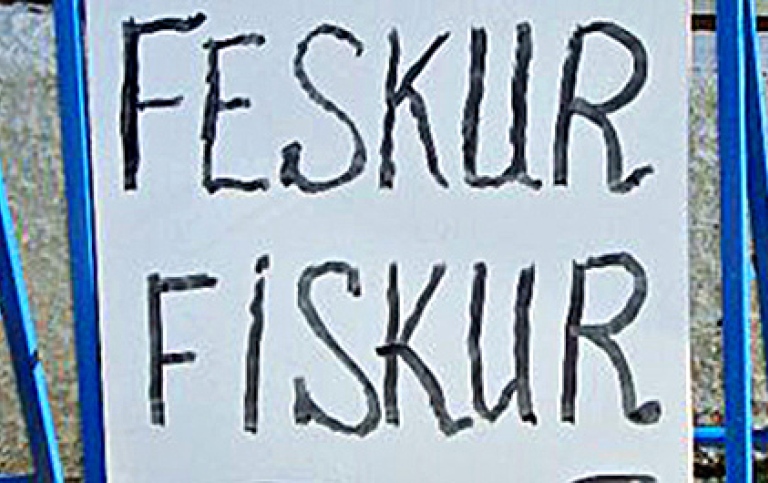 FESKUR
FiSKUR